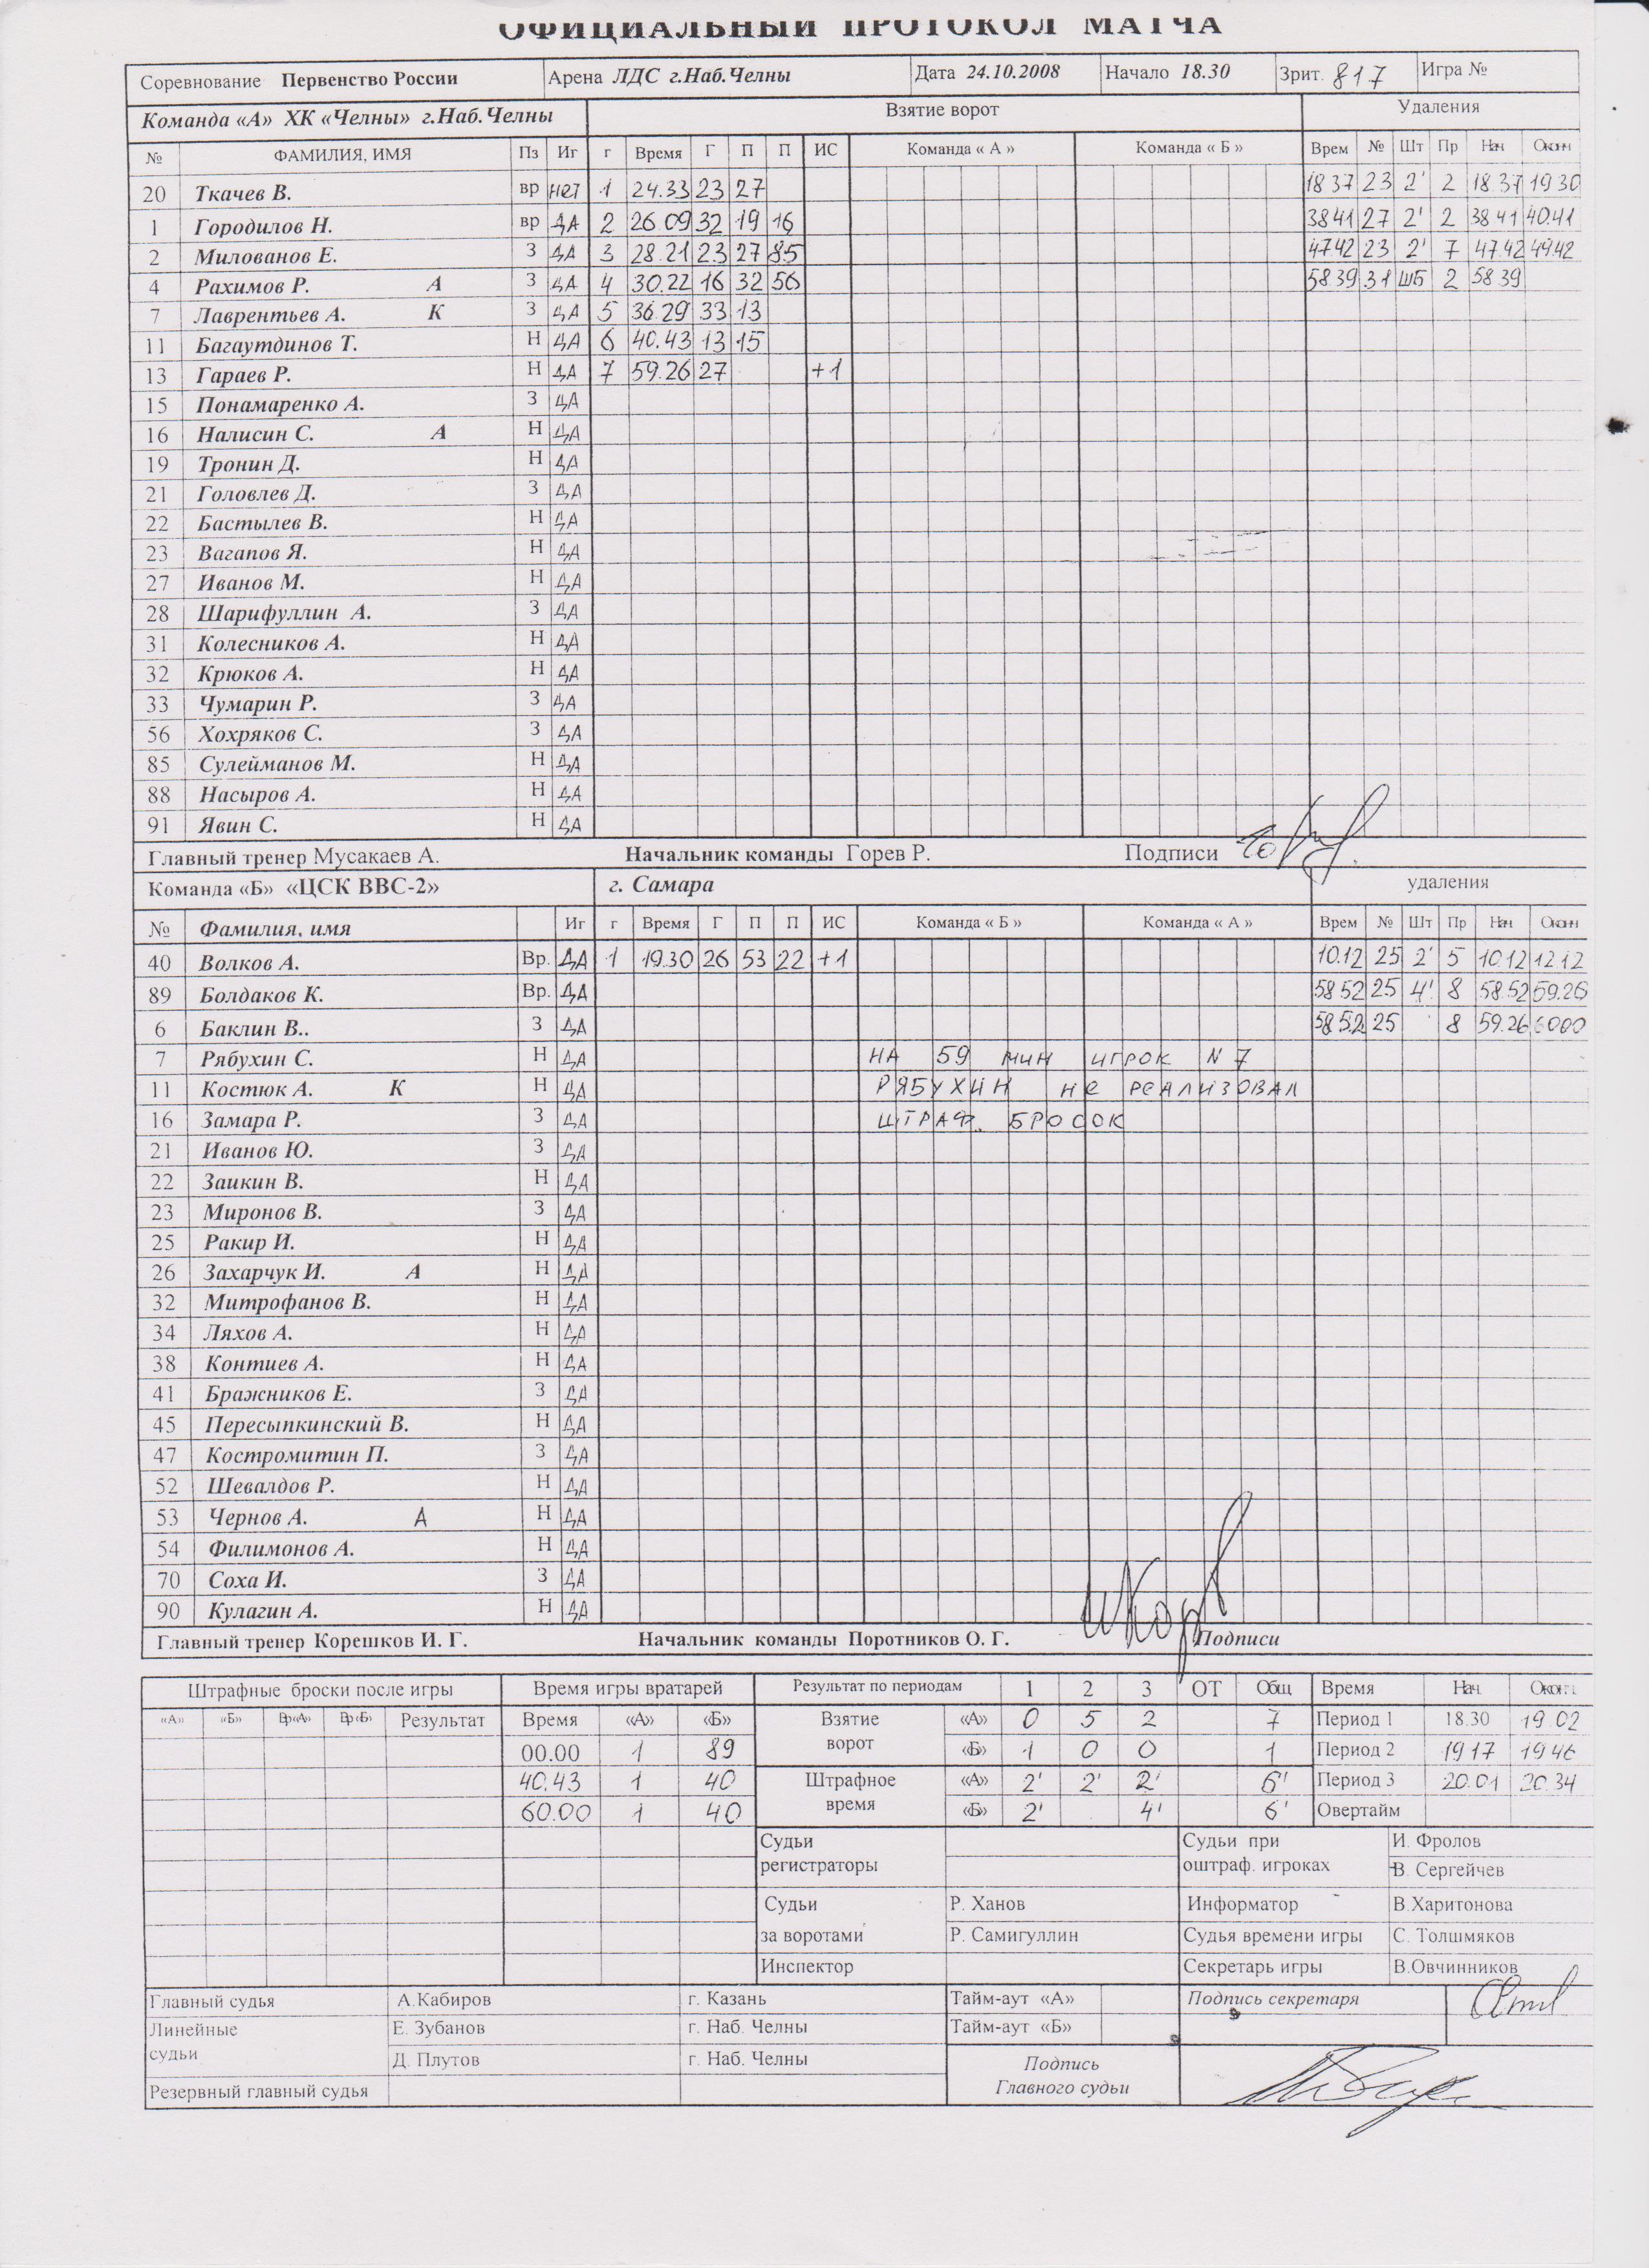 ОФИЦИАЛЬНЫЙ ПРОТОКОЛ МАТЧА
Соревнование Первенство России Арена ЛДС г.Наб.Челны Дата 24.10.2008 Начало 18.30 Зрит. 817 Игра №
Команда «А» ХК «Челны» г.Наб.Челны Взятие ворот Удаления
№ ФАМИЛИЯ, ИМЯ Пз Иг г Время Г П П ИС Команда « А » Команда « Б » Врем № Шт Пр Нач Оконч
20 Ткачев В. вр нет 1 24.33 23 27 18 37 23 2' 2 18 37 19 30
1 Городилов Н. вр ДА 2 26.09 32 19 16 38 41 27 2' 2 38 41 40.41
2 Милованов Е. З ДА 3 28.21 23 27 85 47.42 23 2' 7 47.42 49.42
4 Рахимов Р. А З ДА 4 30.22 16 32 56 58.39 31 ШБ 2 58 39
7 Лаврентьев А. К З ДА 5 36.29 33 13
11 Багаутдинов Т. Н ДА 6 40.43 13 15
13 Гараев Р. Н ДА 7 59.26 27 +1
15 Понамаренко А. З ДА
16 Налисин С. А Н ДА
19 Тронин Д. Н ДА
21 Головлев Д. З ДА
22 Бастылев В. Н ДА
23 Вагапов Я. Н ДА
27 Иванов М. Н ДА
28 Шарифуллин А. З ДА
31 Колесников А. Н ДА
32 Крюков А. Н ДА
33 Чумарин Р. З ДА
56 Хохряков С. З ДА
85 Сулейманов М. Н ДА
88 Насыров А. Н ДА
91 Явин С. Н ДА
Главный тренер Мусакаев А. Начальник команды Горев Р. Подписи
Команда «Б» «ЦСК ВВС-2» г. Самара удаления
№ Фамилия, имя Иг г Время Г П П ИС Команда « Б » Команда « А » Врем № Шт Пр Нач Оконч
40 Волков А. Вр. ДА 1 19.30 26 53 22 +1 10.12 25 2' 5 10.12 12.12
89 Болдаков К. Вр. ДА 58 52 25 4' 8 58.52 59.26
6 Баклин В.. З ДА 58 52 25 8 59.26 6000
7 Рябухин С. Н ДА НА 59 МИН ИГРОК N 7
11 Костюк А. К Н ДА РЯБУХИН НЕ РЕАЛИЗОВАЛ
16 Замара Р. З ДА ШТРАФ. БРОСОК
21 Иванов Ю. З ДА
22 Заикин В. Н ДА
23 Миронов В. З ДА
25 Ракир И. Н ДА
26 Захарчук И. А Н ДА
32 Митрофанов В. Н ДА
34 Ляхов А. Н ДА
38 Контиев А. Н ДА
41 Бражников Е. З ДА
45 Пересыпкинский В. Н ДА
47 Костромитин П. З ДА
52 Шевалдов Р. Н ДА
53 Чернов А. А Н ДА
54 Филимонов А. Н ДА
70 Соха И. З ДА
90 Кулагин А. Н ДА
Главный тренер Корешков И. Г. Начальник команды Поротников О. Г. Подписи
Штрафные броски после игры Время игры вратарей Результат по периодам 1 2 3 ОТ Общ Время Нач. Оконч.
«А» «Б» Вр«А» Вр«Б» Результат Время «А» «Б» Взятие ворот «А» 0 5 2 7 Период 1 18.30 19.02
00.00 1 89 «Б» 1 0 0 1 Период 2 19 17 19 46
40.43 1 40 Штрафное время «А» 2' 2' 2' 6' Период 3 20.01 20.34
60.00 1 40 «Б» 2' 4' 6' Овертайм
Судьи регистраторы Судьи при оштраф. игроках И. Фролов
В. Сергейчев
Судьи за воротами Р. Ханов Информатор В.Харитонова
Р. Самигуллин Судья времени игры С. Толшмяков
Инспектор Секретарь игры В.Овчинников
Главный судья А.Кабиров г. Казань Тайм-аут «А» Подпись секретаря
Линейные судьи Е. Зубанов г. Наб. Челны Тайм-аут «Б»
Д. Плутов г. Наб. Челны Подпись Главного судьи
Резервный главный судья